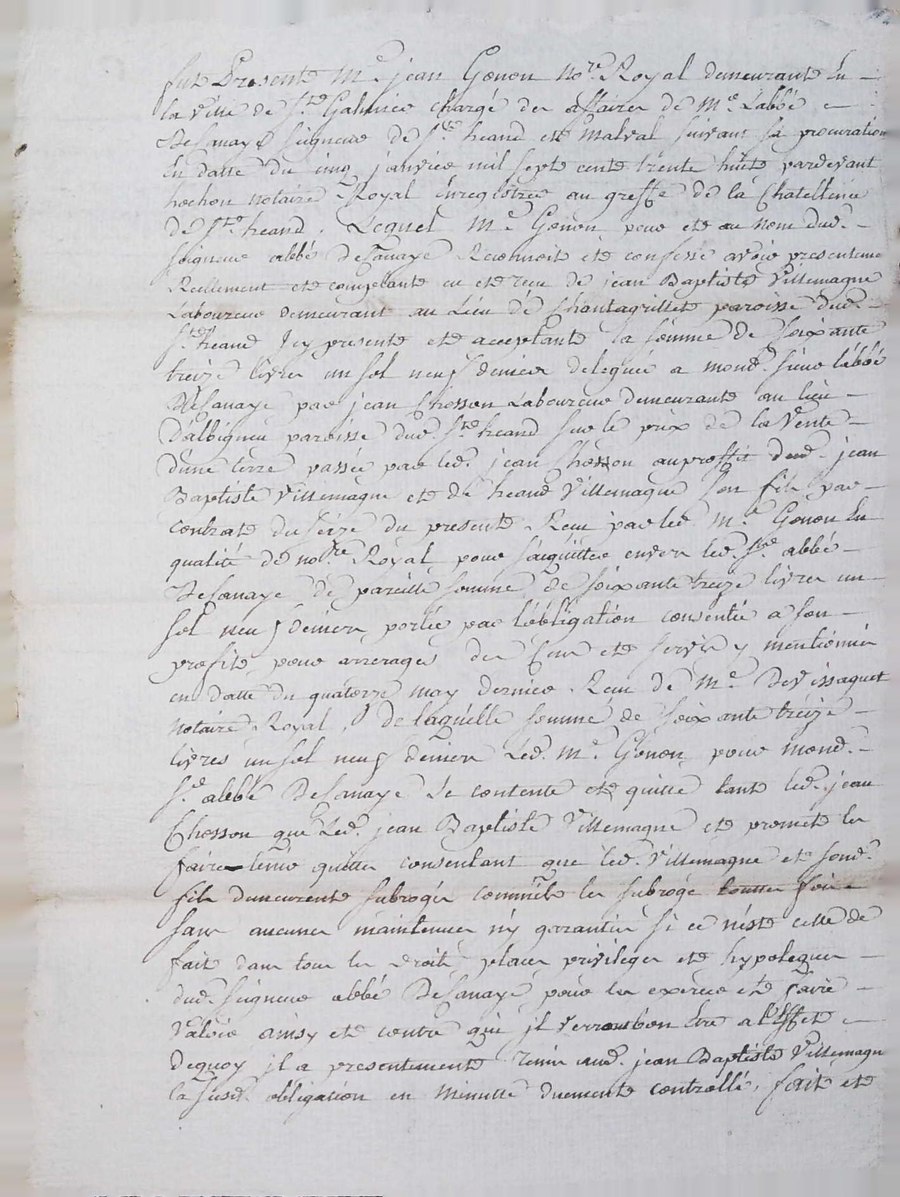 fut Presente Me. jean Genon nore. Royal demeurante En
la ville de St. Galmier chargé des affaires de Mr. L'abbé
De Sanaye seigneur de St. heand ete malval suivant sa procuration
En datte du cinq janvier mil septe cente trente huite pardevant
hochon notaire Royal Enregistrée au greffe de la Chatellenie
de St. heand. Lequel Me. Genon pour ete au nom dud.
seigneur abbé de Sanaye Reconnoit ete confesse avoir presenteme
Reellement ete comptante eu ete reçu de jean Baptiste Villemagne
Laboureur demeurant au Lieu de Chantagrillet paroisse dud.
St. heand Icy presente ete acceptante la somme de soixante
treize livres un sol neuf deniers deleguée a mond. sieur l'abbé
De Sanaye par jean Chosson Laboureur demeurante au lieu
D'albigneu paroisse dud. St. heand sur le prix de la Vente
d'une terre passée par led. jean Chosson au proffit dud. jean
Baptiste Villemagne ete de heand Villemagne son fils par
contrate du seize du presente Reçu par led. Me. Genon En
qualité de nore. Royal pour s'aquitter envers led. sr. abbé
De Sanaye de pareille somme de soixante treize livres un
sol neuf deniers portée par l'obligation consentie a son
profite pour arrerages de Cens ete servis y mentionnés
en datte du quatorze may dernier. Reçu de Me. Devissaguet
notaire Royal, de laquelle somme de soixante treize
livres un sol neuf deniers Led. Me. Genon pour mond.
Sr. abbé De Sanaye se contente ete quitte tante led. jean
Chosson que Led. jean Baptiste Villemagne ete promete les
faire tenir quittes consentant que led. Villemagne ete sond.
fils demeurente subrogés comm'il les subroge
sans aucunes maintenues n'y garanties si ce n'este celle de
fait dans tous les droits places privileges ete hypoteques
dud. seigneur abbé De Sanaye pour les exercer ete faire
Valoir ainsy ete contre qui jl verront bon Etre a l'Effet
dequoy jl a presentemente remis aud. jean Baptiste Villemagne
la susd. obligation en minutte duemente controllé, fait ete